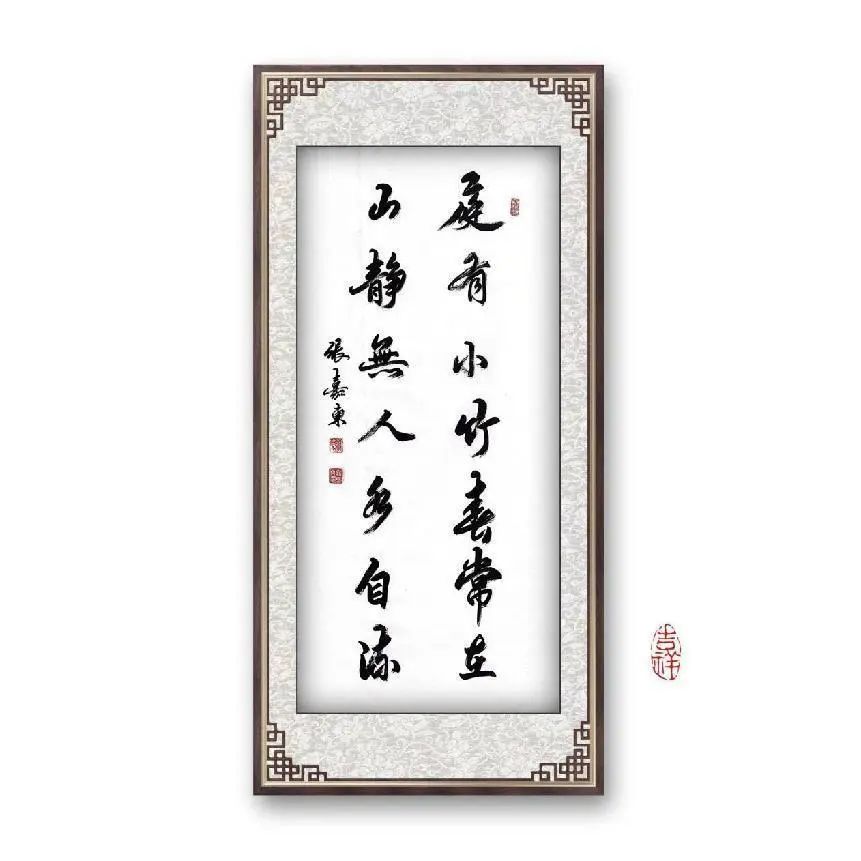 庭有小竹春常在
山静無人水自流
張嘉東
吉祥